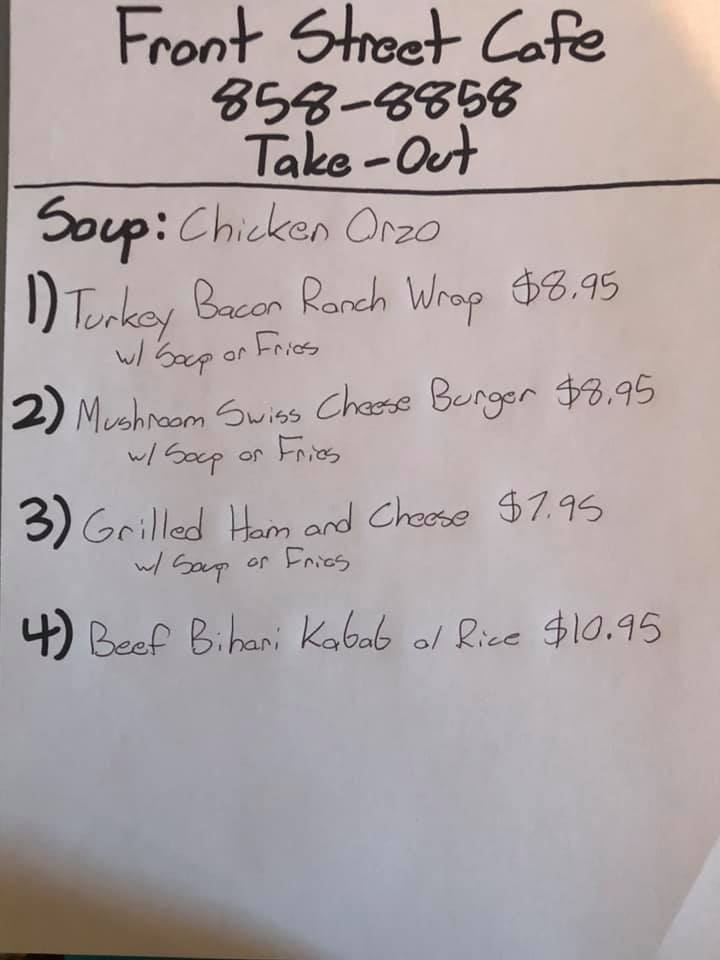 Front Street Cafe
858-8858
Take-Out
Soup: Chicken Orzo
1) Turkey Bacon Ranch Wrap $8.95
w/ Soup or Fries
2) Mushroom Swiss Cheese Burger $8.95
w/ Soup or Fries
3) Grilled Ham and Cheese $7.95
w/ Soup or Fries
4) Beef Bihari Kabab o/ Rice $10.95